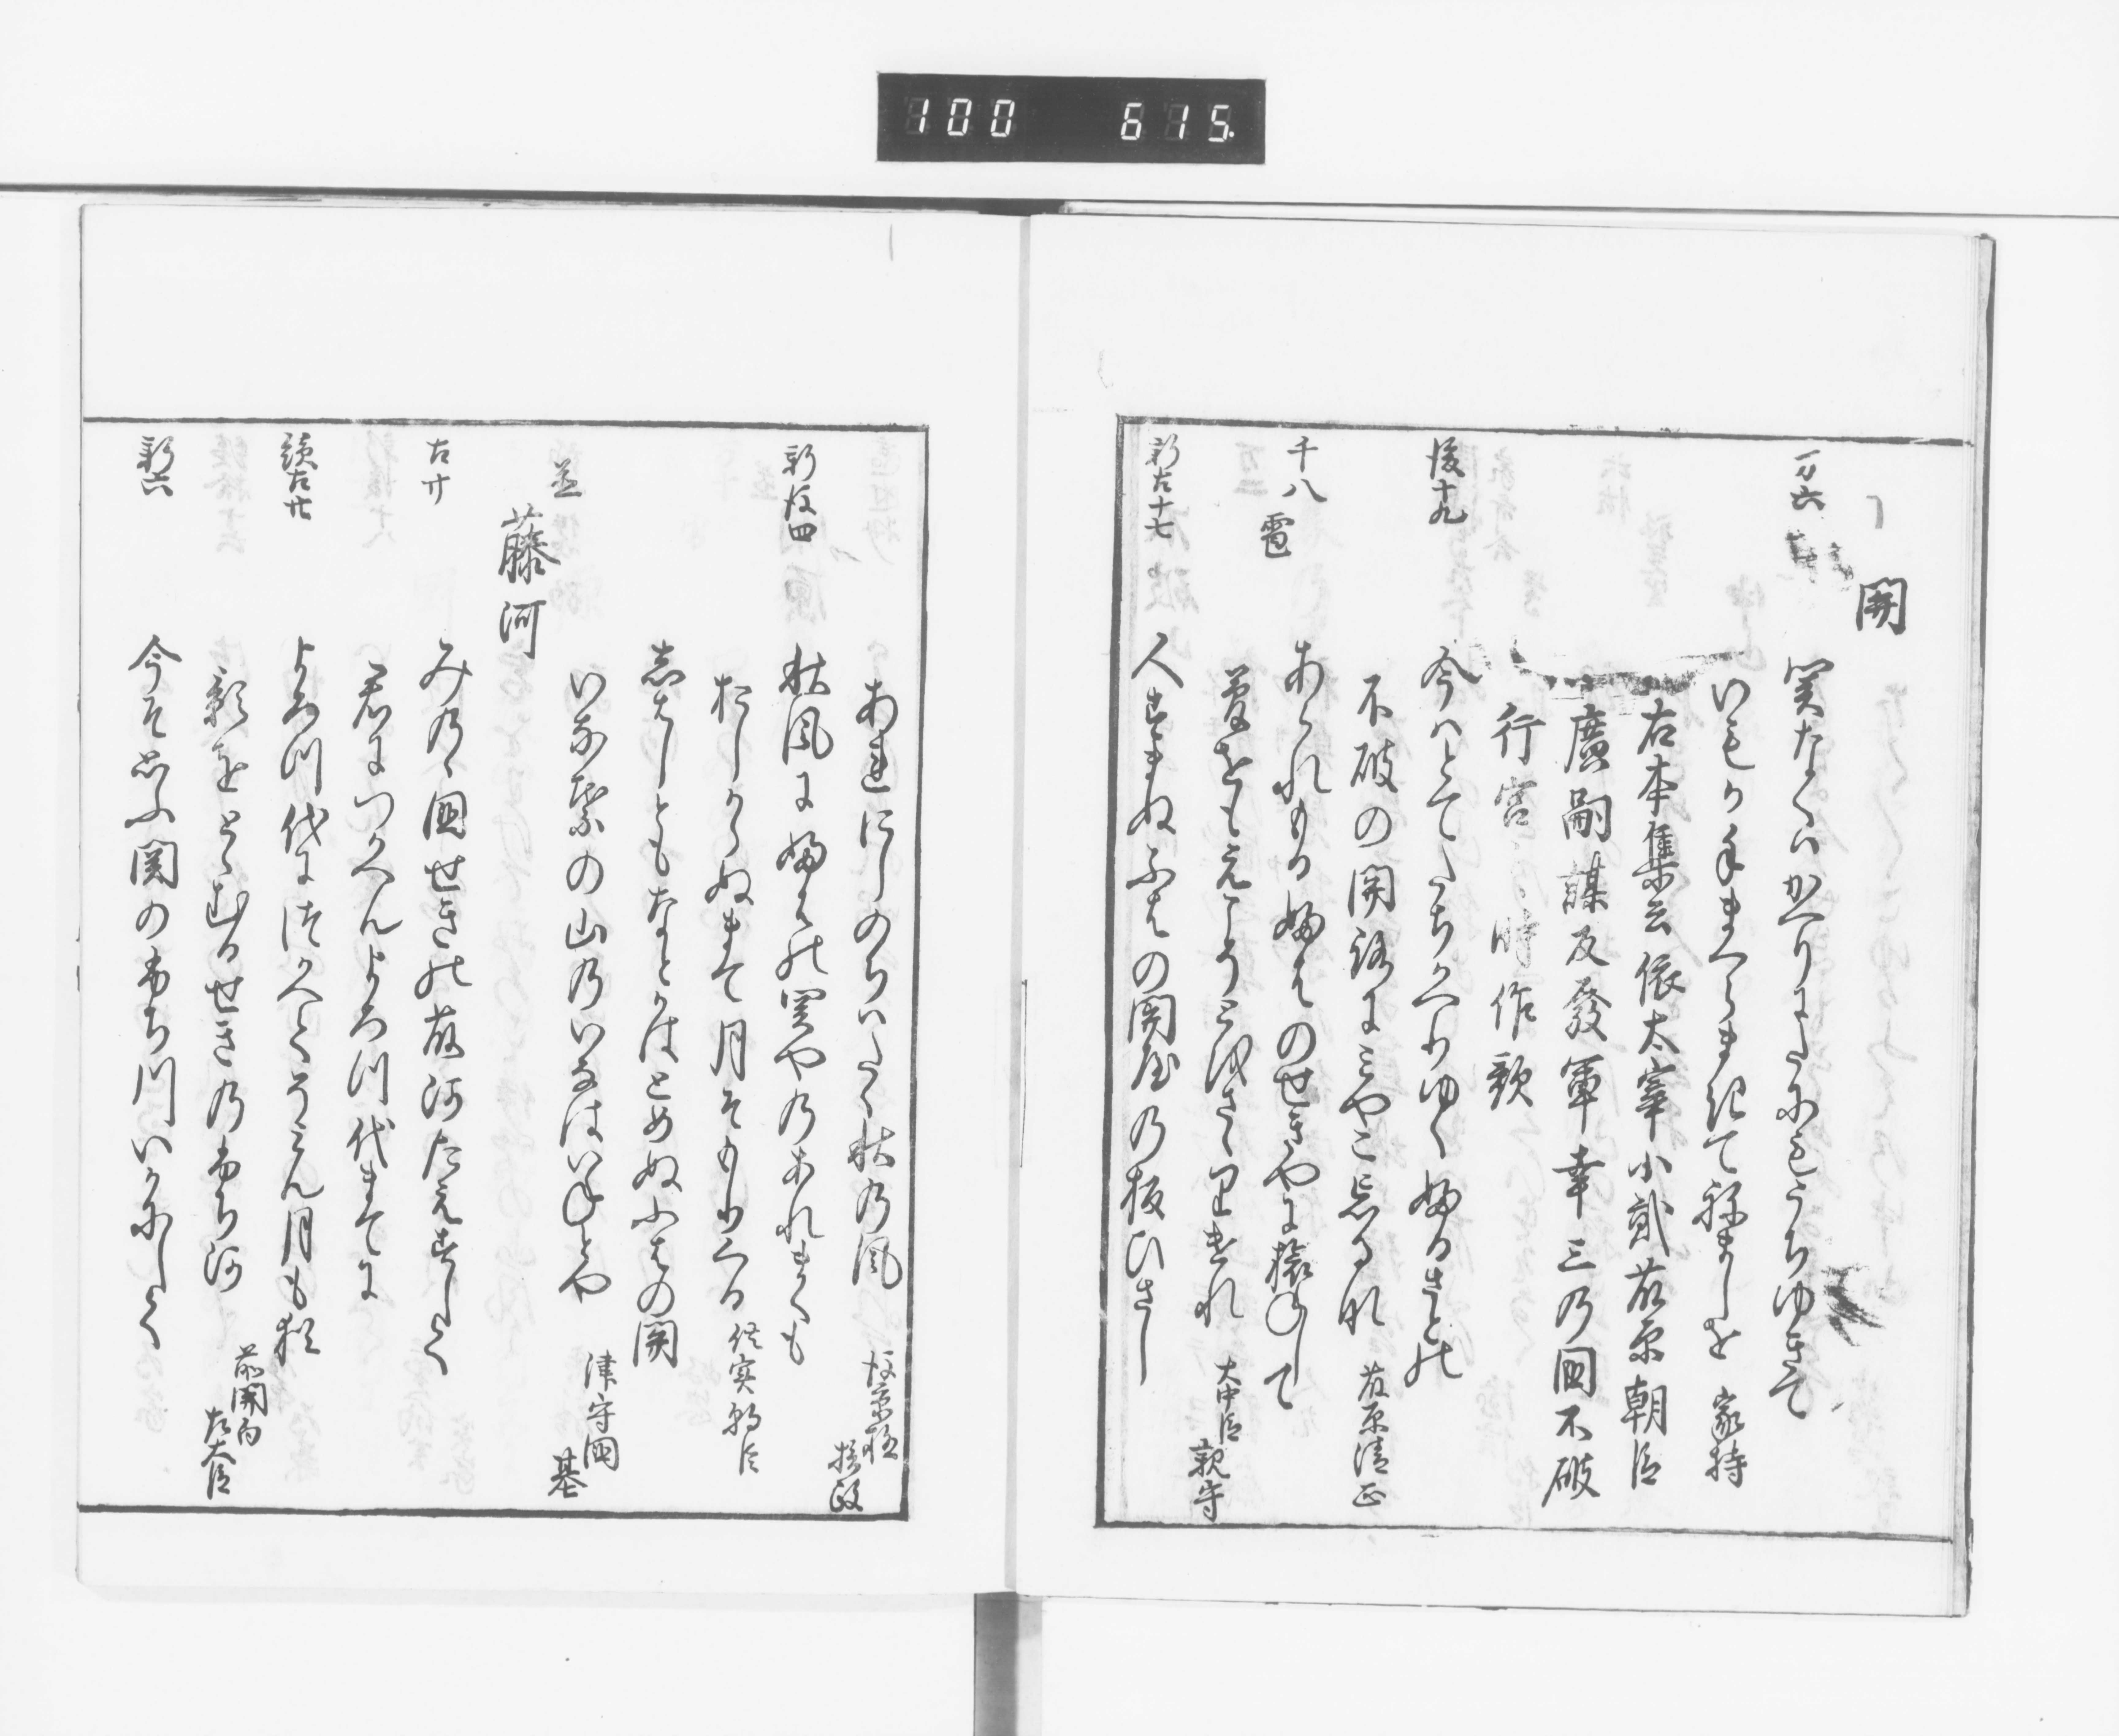 100 615.
関
万六 関なくはかへりにたにもうちゆきて
いもか手まくらまきて称ましを 家持
右本集云依太宰小貳藤原朝臣
廣嗣謀反發軍幸三乃國不破
行宮時作歌
後十九 今はとてたちかへりゆくふるさとの
不破の関路にみやこ忘るな 藤原清正
千八 あられもるふはのせきやに旅ねして
雹 夢をもえこそとほさゝりけれ 大中臣親守
新古十七 人すまぬふはの関屋の板ひさし
あれにしのちはたゝ秋の風 後京極摂政
新後四 秋風にふはの関やのあれまくも
おしからぬまて月そもりくる 信実朝臣
しはしともなとかはとめぬふはの関
並 いな葉の山のいなはいねとや 津守國基
藤河
古廿 みのゝ國せきの藤河たえすして
君につかへんよろつ代まてに
続古廿 よろつ代につかへてそみん月も猶
影をとゝむるせきのふち河 前関白左大臣
新六 今そ思ふ関のふち川いかにして